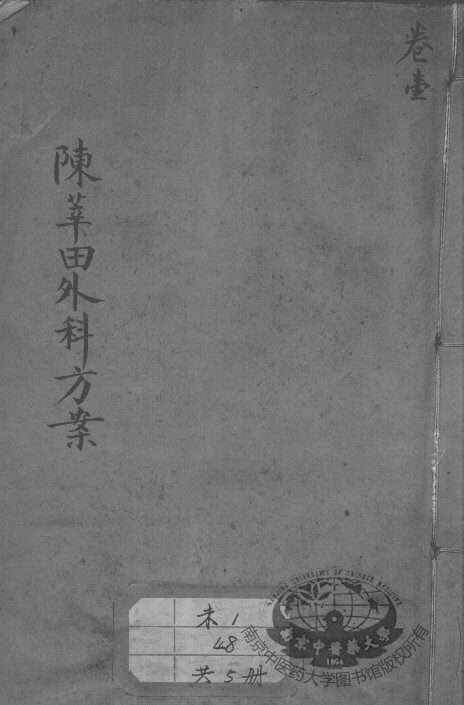 卷壹
陳莘田外科方案
未 1
48
共 5 册
NANJING UNIVERSITY OF CHINESE MEDICINE
南京中醫藥大學
1954
南京中医药大学图书馆版权所有